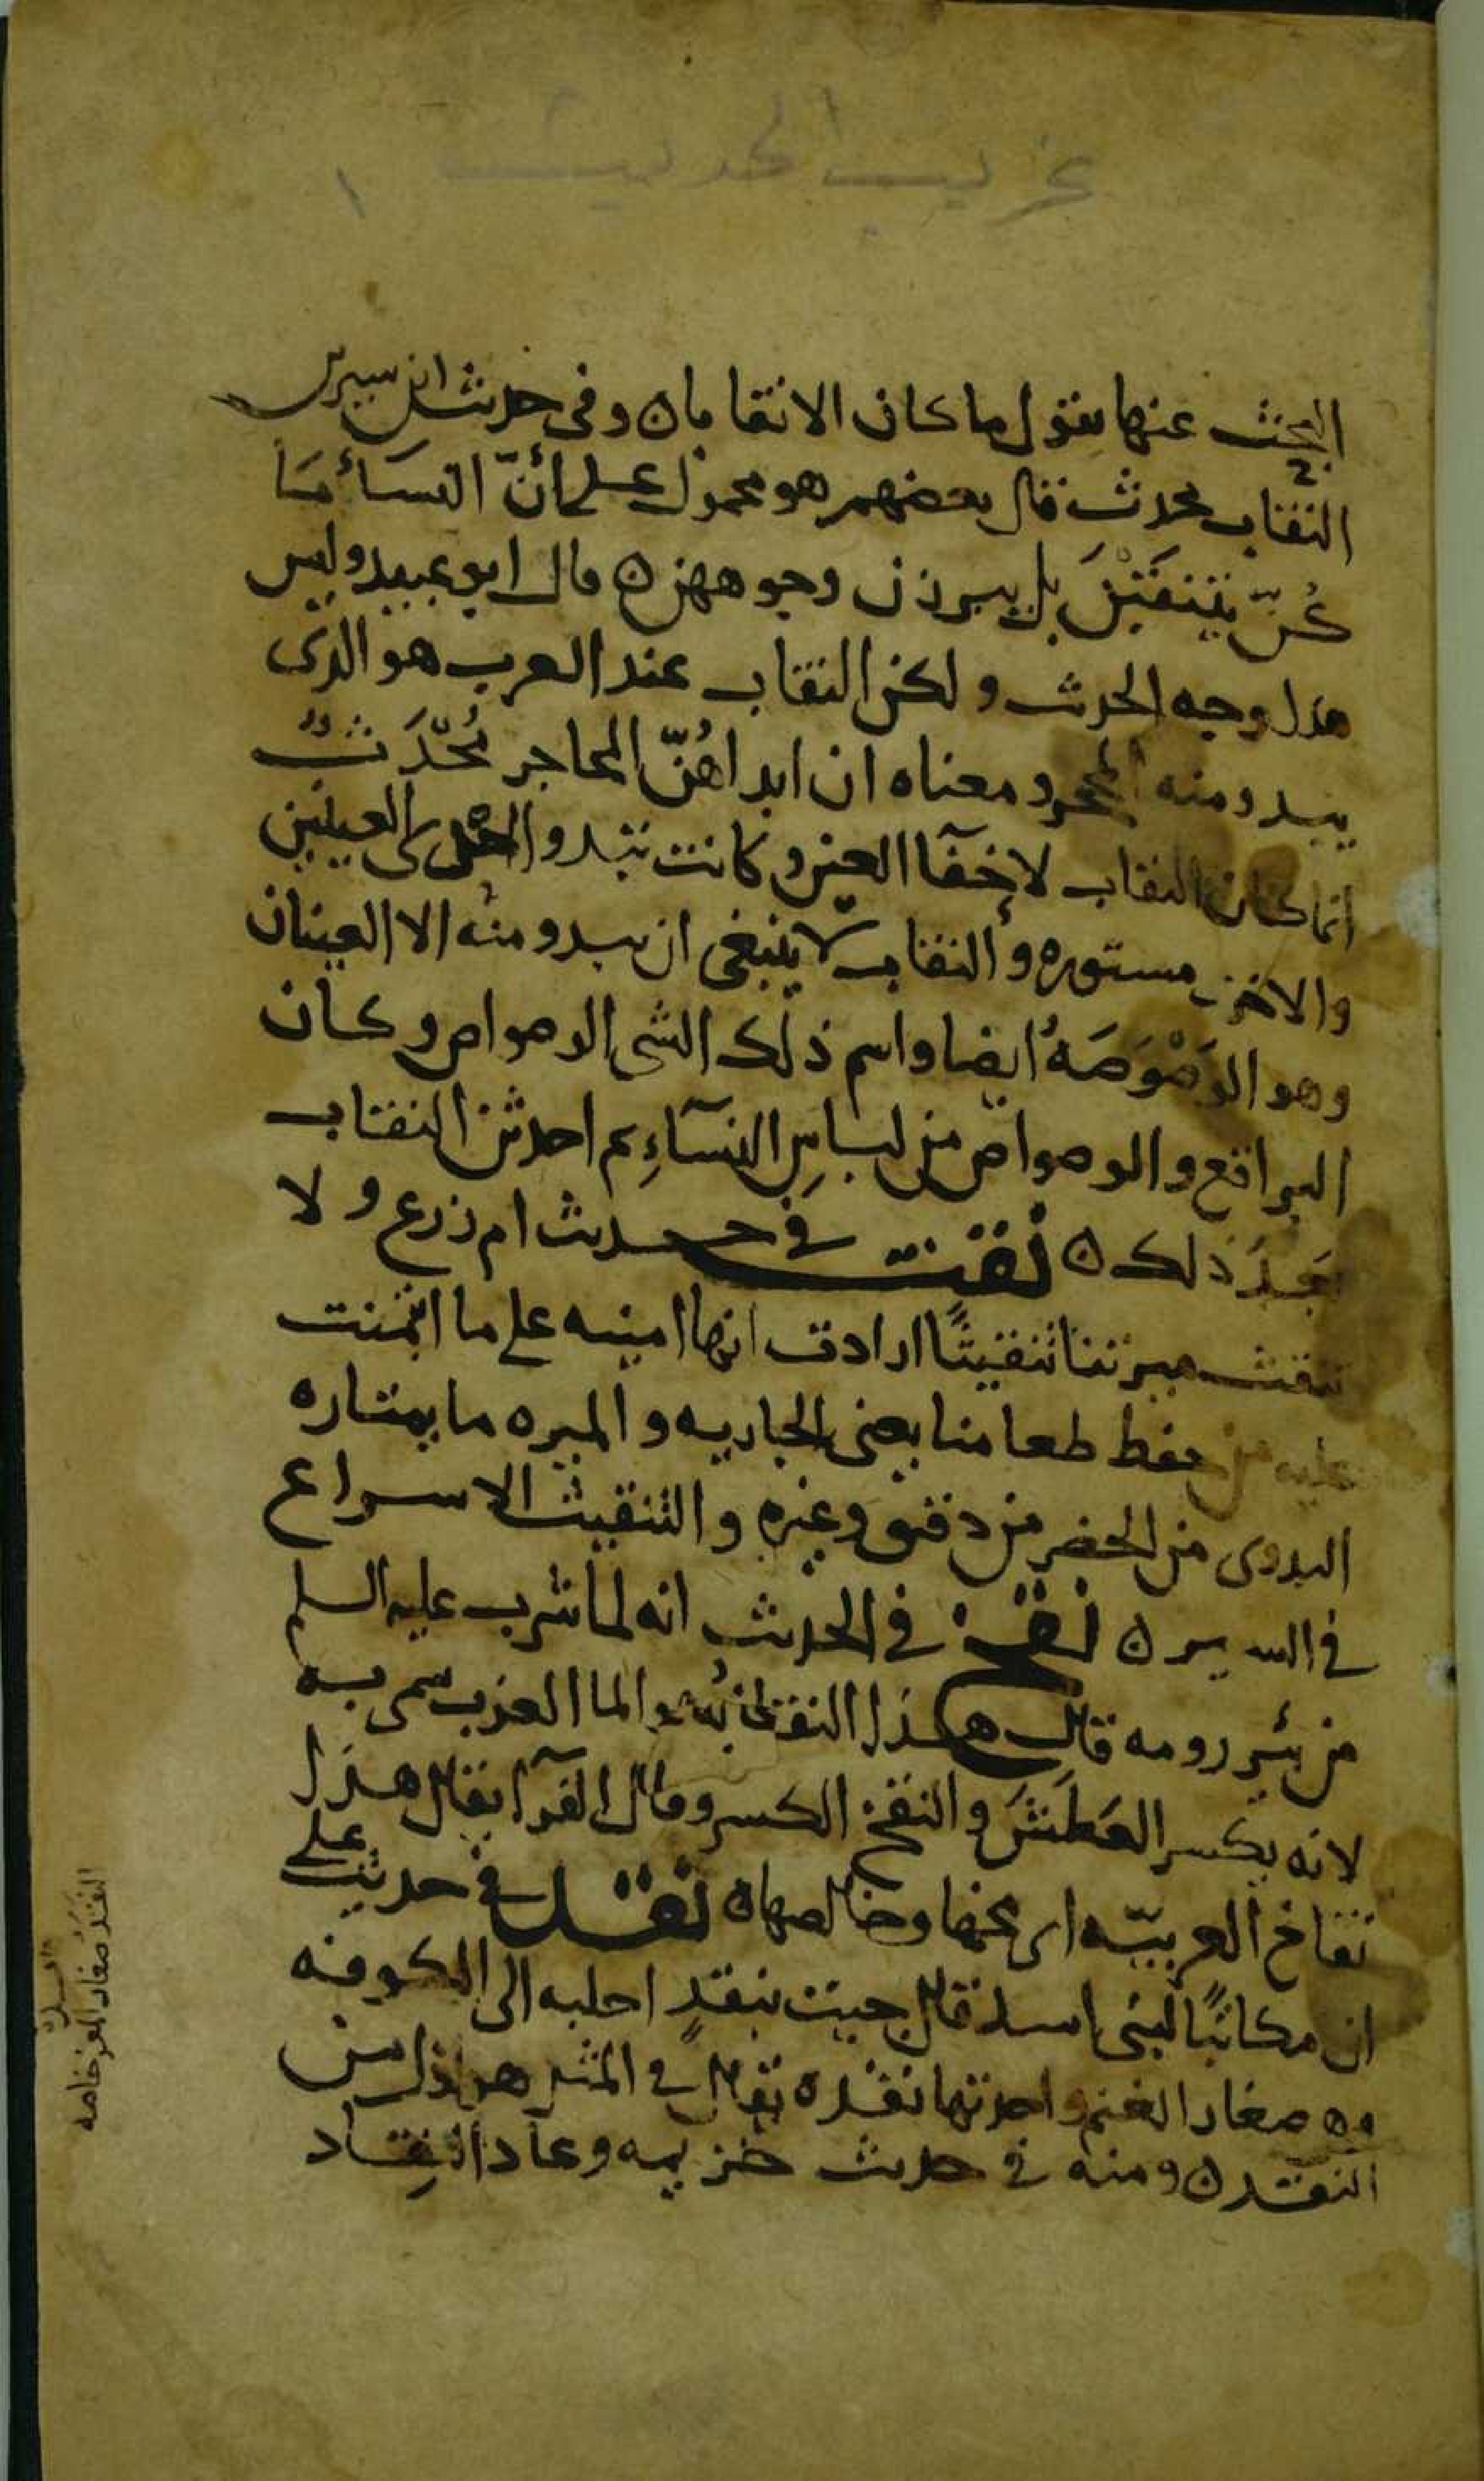 غريب الحديث ١
البحث عنها يقول ما كان الا نقابا ن وفي حديث ابن سيرين
النقاب محدث قال بعضهم هو محمول على أنّ النسآء مَا
كُنّ يَتنَقبْنَ بل يبرزن وجوههن ن قال ابو عبيد وليس
هذا وجه الحدث ولكن النقاب عند العرب هو الذى
يبدو منه المحجر ومعناه ان ابداهُنّ المحاجر مُحْدَثٌ
انما كان النقاب لاخفآ العين وكانت تبدو احدى العينين
والاخرى مستوره والنقاب لا ينبغى ان يبدو منه الا العينان
وهو الوَصْوَصَهُ ايضا واسم ذلك الشى الوصواص وكان
البراقع والوصواص من لباسِ النسآءِ ثم احدثن النقاب
بَعدَ ذلك ن نقث في حديث ام زرع ولا
تنقث ميرتنا تنقيثًا ارادت انها امينه على ما ائتمنت
عليه من حفظ طعامنا يعنى الجاريه والميره ما يمتاره
البدوى من الحضر من دقيق وغيره والتنقيث الاسراع
في السير ن نقخ في الحديث انه لما شرب عليه السلم
من بئر رومه قال هذا النقاخ وهو الما العذب سمى به
لانه يكسر العَطشَ والنقخ الكسر وقال الفرآ يقال هذا
نقاخ العربيّه اى مخها وخالصها ن نقد في حديث على
ان مكاتبًا لبنى اسد قال جيت بنقدٍ اجلبه الى الكوفه
وه صغار الغنم واحدتها نقده يقال في المثل هو اذل من
النقد ن ومنه في حديث خزيمه وعاد النِقاد
النقد صغار المعز خاصه